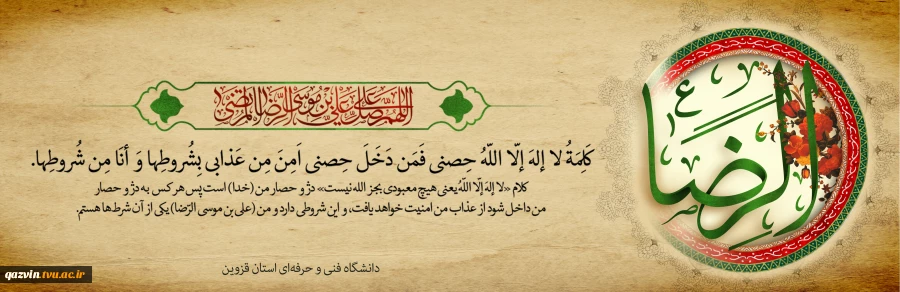 اللهم صل علی علی بن موسی الرضا المرتضی
الرضا
ع
کَلِمَةُ لا إلهَ إلّا اللّهُ حِصنی فَمَن دَخَلَ حِصنی اَمِنَ مِن عَذابی بِشُروطِها وَ أنَا مِن شُروطِها.
کلام «لا إلهَ إلّا اللّهُ یعنی هیچ معبودی بجز الله نیست» دژ و حصار من (خدا) است پس هر کس به دژ و حصار
من داخل شود از عذاب من امنیت خواهد یافت، و این شروطی دارد و من (علی بن موسی الرّضا) یکی از آن شرط‌ها هستم.
دانشگاه فنی و حرفه‌ای استان قزوین
qazvin.tvu.ac.ir